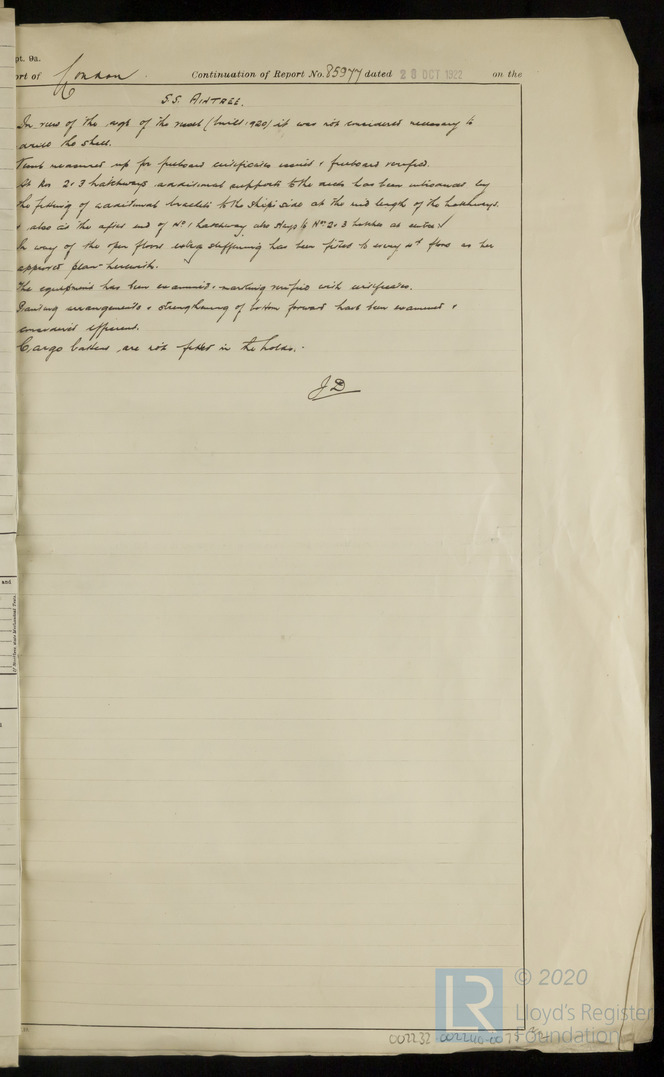 pt. 9a.
ort of London. Continuation of Report No. 85977 dated 28 OCT 1922 on the
S.S. AINTREE.
In view of the age of the vessel (built 1920) it was not considered necessary to
drill the shell.
measured up for freeboard certificates issued & freeboard verified.
At Nos 2 & 3 hatchways additional supports to the decks has been by
the fitting of additional brackets to the ships side at the mid length of the hatchways.
& also at the after end of No 1 hatchway, also to Nos 2 & 3 at
In way of the open floors stiffening has been fitted to every floor as per
approved plan herewith.
The equipment has been examined & marking verified with certificates.
arrangements & strengthening of bottom forward have been examined &
considered efficient.
Cargo battens are not fitted in the holds.
JD
and
LR
© 2020
Lloyd's Register
Foundation
002232-002240-0075